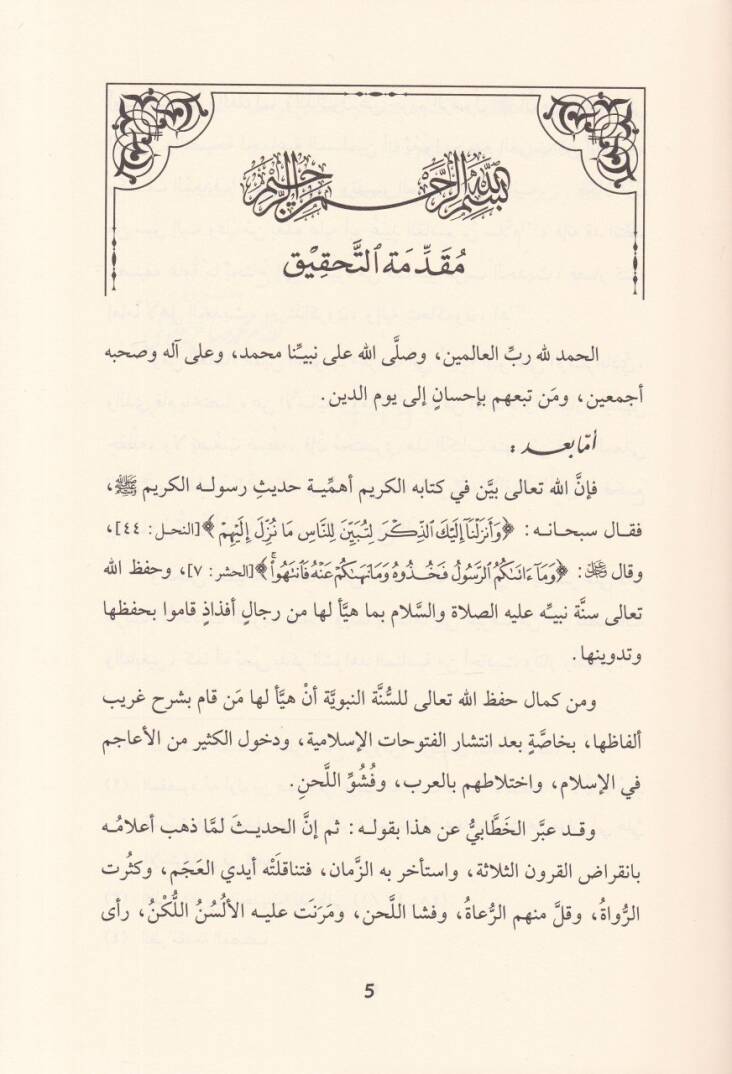 بسم الله الرحمن الرحيم
مُقَدِّمَة ٱلتَّحقِيْق
الحمد لله ربِّ العالمين، وصلَّى الله على نبيِّنا محمد، وعلى آله وصحبه
أجمعين، ومَن تبعهم بإحسانٍ إلى يوم الدين.
أمّا بعد:
فإنَّ الله تعالى بيَّن في كتابه الكريم أهمِّيـة حديثِ رسولـه الكريم ﷺ،
فقـال سبحانـه: ﴿وَأَنزَلْنَآ إِلَيْكَ ٱلذِّكْرَ لِتُبَيِّنَ لِلنَّاسِ مَا نُزِّلَ إِلَيْهِمْ﴾ [النحـل: ٤٤]،
وقال ﷻ: ﴿وَمَآ ءَاتَىٰكُمُ ٱلرَّسُولُ فَخُذُوهُ وَمَا نَهَىٰكُمْ عَنْهُ فَٱنتَهُوا۟ۚ﴾ [الحشر: ٧]، وحفظ الله
تعالى سنَّة نبيِّـه عليه الصلاة والسَّلام بما هيَّأ لها من رجالٍ أفذاذٍ قاموا بحفظها
وتدوينها.
ومن كمال حفظ الله تعالى للسُّنَّة النبويَّة أنْ هيَّأ لها مَن قام بشرح غريب
ألفاظها، بخاصَّةٍ بعد انتشار الفتوحات الإسلامية، ودخول الكثير من الأعاجم
في الإسلام، واختلاطهم بالعرب، وفُشُوِّ اللَّحنِ.
وقـد عبَّر الخَطَّابيُّ عن هذا بقولـه: ثم إنَّ الحديـثَ لمَّا ذهب أعلامُـه
بانقراض القرون الثلاثة، واستأخر به الزَّمان، فتناقلَتْه أيدي العَجَم، وكثُرت
الرُّواةُ، وقلَّ منهم الرُّعاةُ، وفشا اللَّحن، ومَرَنَت عليـه الألْسُنُ اللُّكْنُ، رأى
5